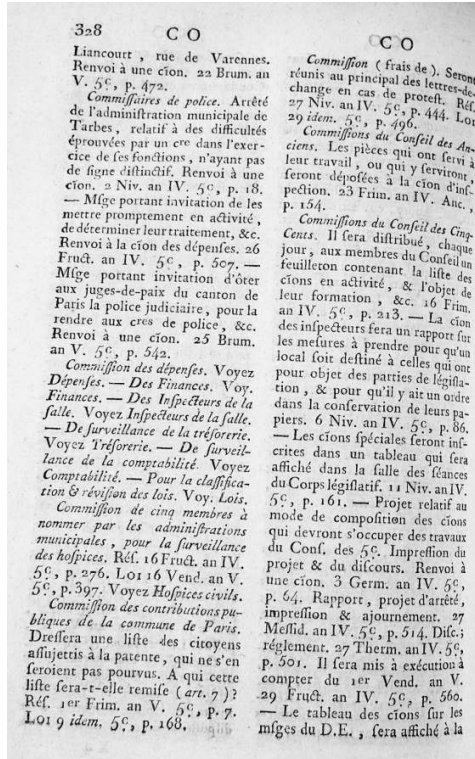 328 C O
Liancourt, rue de Varennes.
Renvoi à une cïon. 22 Brum. an
V. 5ᶜ, p. 472.
Commiſſaires de police. Arrêté
de l'adminiſtration municipale de
Tarbes, relatif à des difficultés
éprouvées par un cre dans l'exer-
cice de ſes fonctions, n'ayant pas
de ſigne diſtinctif. Renvoi à une
cïon. 2 Niv. an IV. 5ᶜ, p. 18.
— Mſge portant invitation de les
mettre promptement en activité,
de déterminer leur traitement, &c.
Renvoi à la cïon des dépenſes. 26
Fruct. an IV. 5ᶜ, p. 507. —
Mſge portant invitation d'ôter
aux juges-de-paix du canton de
Paris la police judiciaire, pour la
rendre aux cres de police, &c.
Renvoi à une cïon. 25 Brum.
an V. 5ᶜ, p. 542.
Commiſſion des dépenſes. Voyez
Dépenſes. — Des Finances. Voy.
Finances. — Des Inſpecteurs de la
ſalle. Voyez Inſpecteurs de la ſalle.
— De ſurveillance de la tréſorerie.
Voyez Tréſorerie. — De ſurveil-
lance de la comptabilité. Voyez
Comptabilité. — Pour la claſſifica-
tion & réviſion des lois. Voy. Lois.
Commiſſion de cinq membres à
nommer par les adminiſtrations
municipales, pour la ſurveillance
des hoſpices. Réſ. 16 Fruct. an IV.
5ᶜ, p. 276. Loi 16 Vend. an V.
5ᶜ, p. 397. Voyez Hoſpices civils.
Commiſſion des contributions pu-
bliques de la commune de Paris.
Dreſſera une liſte des citoyens
aſſujettis à la patente, qui ne s'en
ſeroient pas pourvus. A qui cette
liſte ſera-t-elle remiſe (art. 7)?
Réſ. 1er Frim. an V. 5ᶜ, p. 7.
Loi 9 idem. 5ᶜ, p. 168.
C O
Commiſſion (frais de). Seront
réunis au principal des lettres-de-
change en cas de proteſt. Réſ.
27 Niv. an IV. 5ᶜ, p. 444. Loi
29 idem. 5ᶜ, p. 496.
Commiſſions du Conſeil des An-
ciens. Les pièces qui ont ſervi à
leur travail, ou qui y ſerviront,
ſeront dépoſées à la cïon d'inſ-
pection. 23 Frim. an IV. Anc.,
p. 154.
Commiſſions du Conſeil des Cinq-
Cents. Il ſera diſtribué, chaque
jour, aux membres du Conſeil un
feuilleton contenant la liſte des
cïons en activité, & l'objet de
leur formation, &c. 16 Frim.
an IV. 5ᶜ, p. 213. — La cïon
des inſpecteurs fera un rapport ſur
les meſures à prendre pour qu'un
local ſoit deſtiné à celles qui ont
pour objet des parties de légiſla-
tion, & pour qu'il y ait un ordre
dans la conſervation de leurs pa-
piers. 6 Niv. an IV. 5ᶜ, p. 86.
— Les cïons ſpéciales ſeront inſ-
crites dans un tableau qui ſera
affiché dans la ſalle des ſéances
du Corps légiſlatif. 11 Niv. an IV.
5ᶜ, p. 161. — Projet relatif au
mode de compoſition des cïons
qui devront s'occuper des travaux
du Conſ. des 5ᶜ. Impreſſion du
projet & du diſcours. Renvoi à
une cïon. 3 Germ. an IV. 5ᶜ,
p. 64. Rapport, projet d'arrêté,
impreſſion & ajournement. 27
Meſſid. an IV. 5ᶜ, p. 514. Diſc.;
réglement. 27 Therm. an IV. 5ᶜ,
p. 501. Il ſera mis à exécution à
compter du 1er Vend. an V.
29 Fruct. an IV. 5ᶜ, p. 560.
— Le tableau des cïons ſur les
mſges du D.E., ſera affiché à la